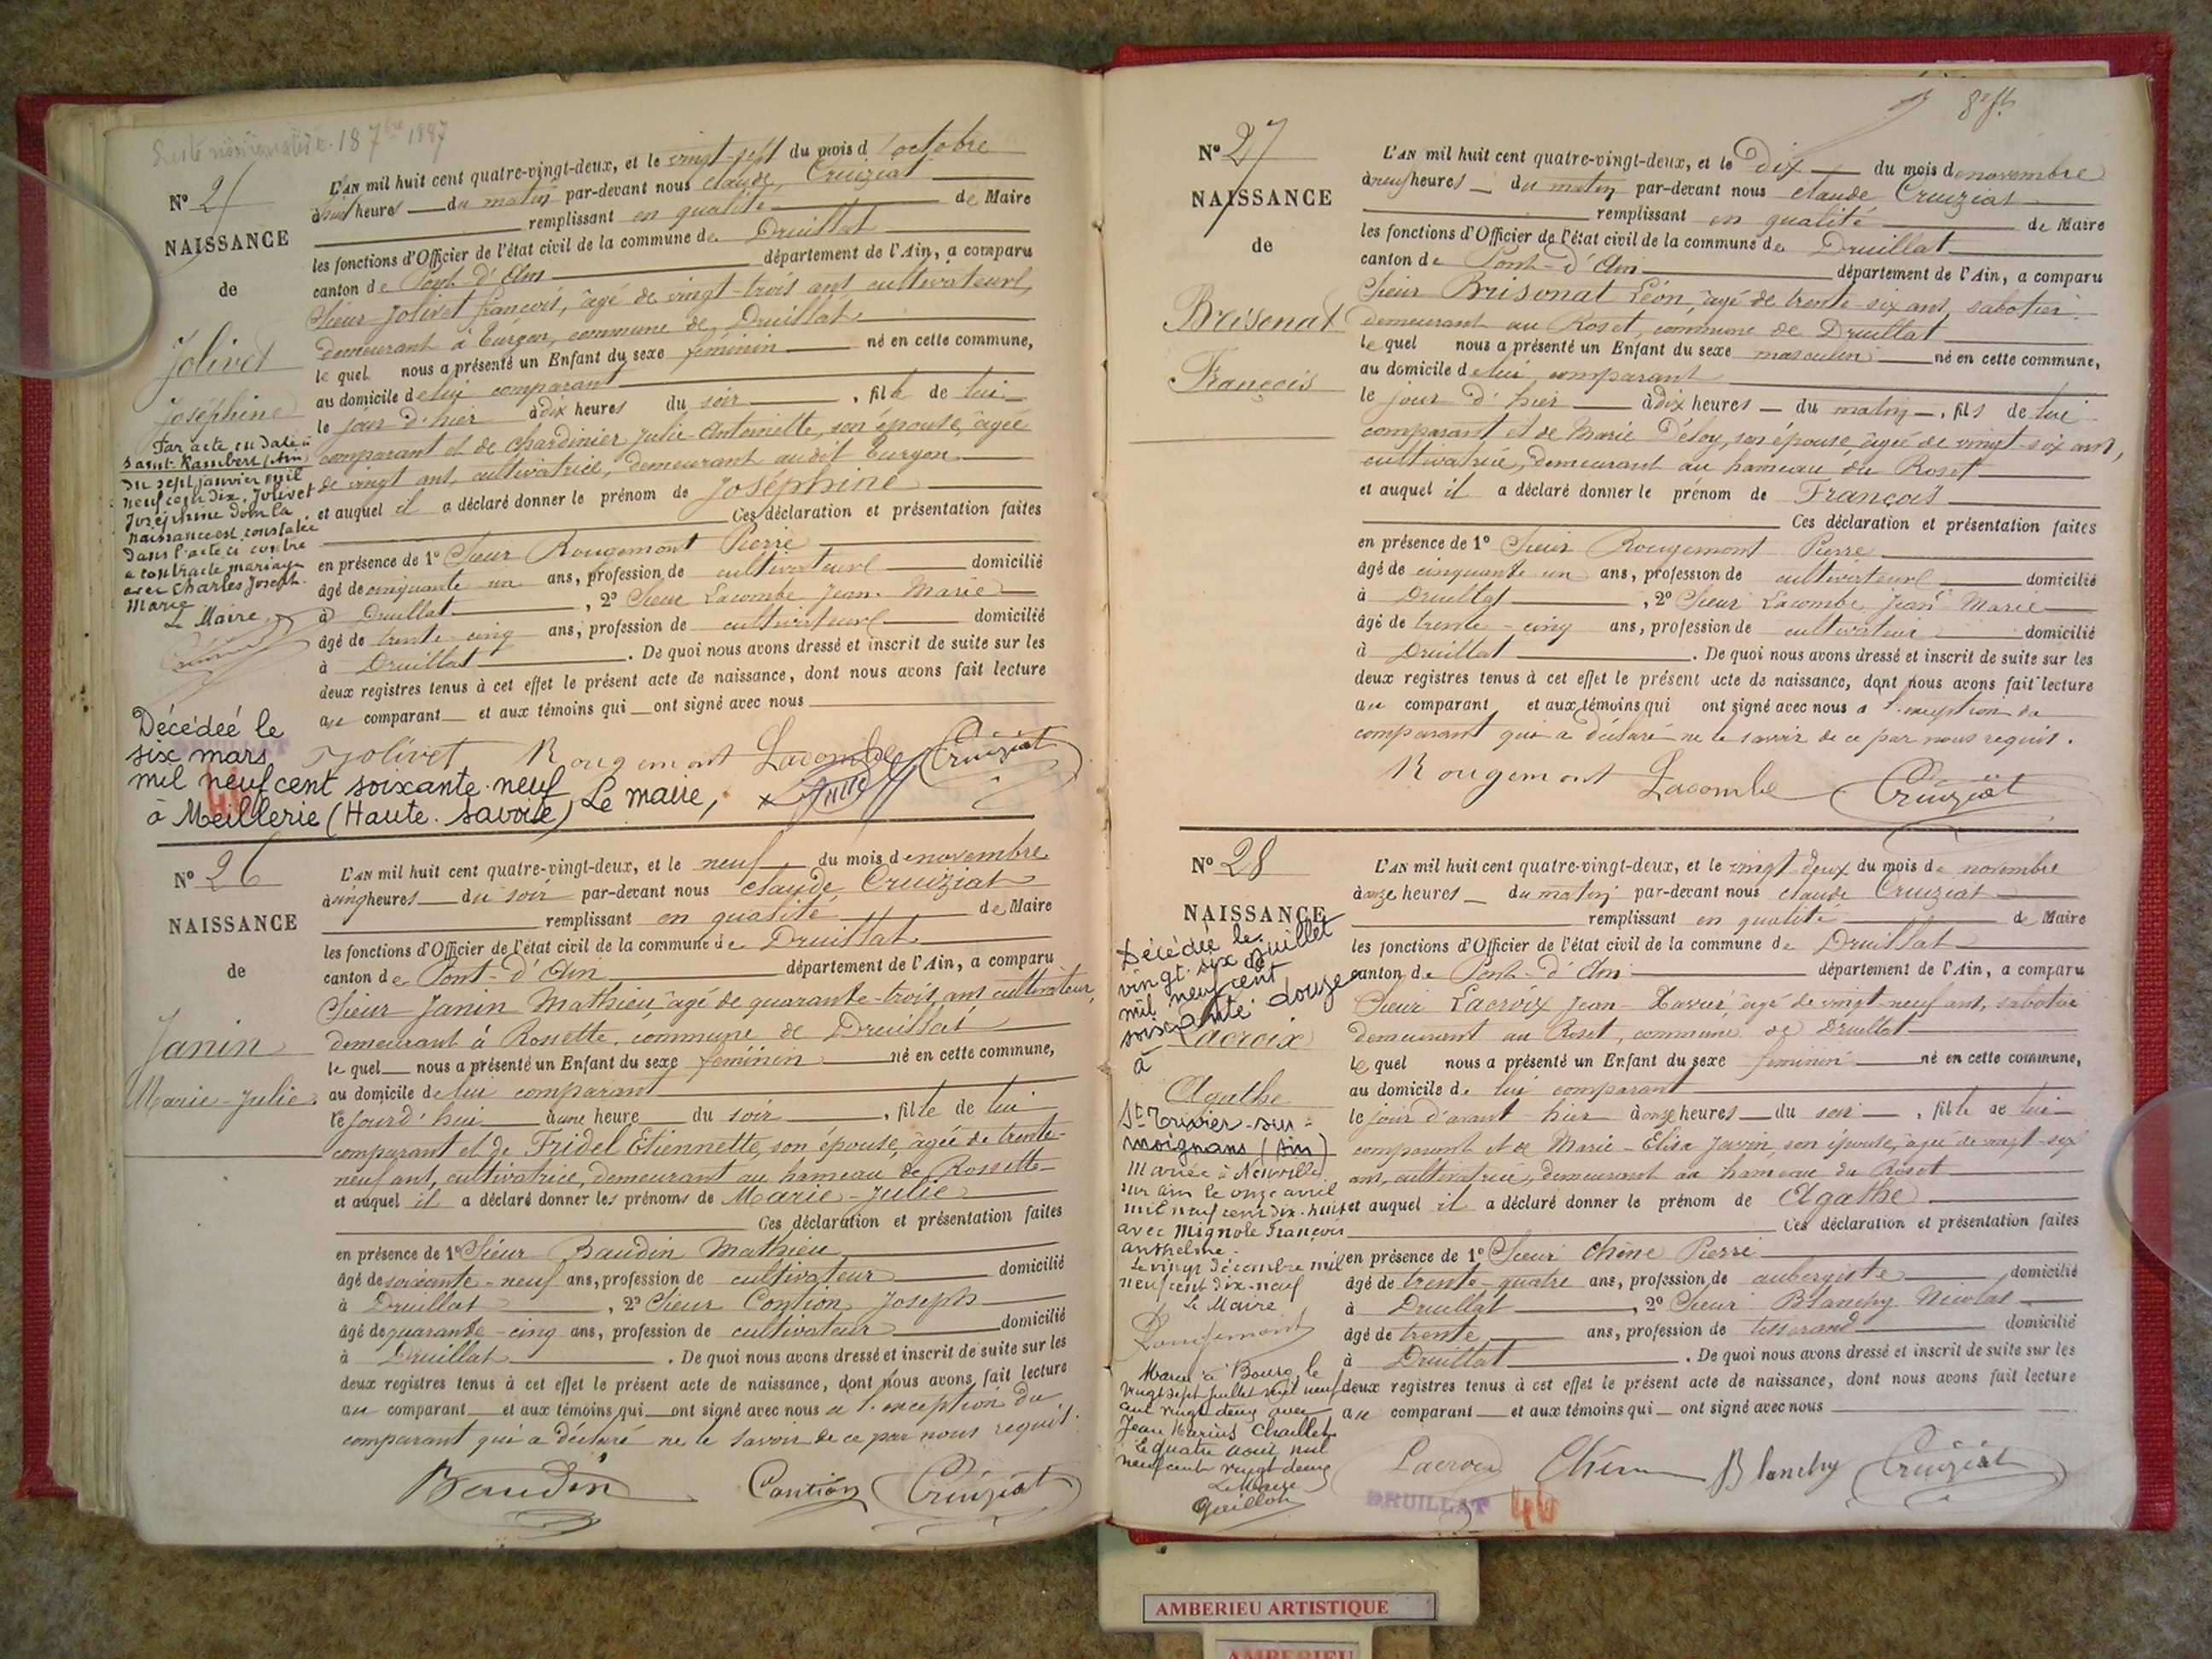 Nº 25
NAISSANCE
de
Jolivet
Joséphine
Par acte en date à
Saint-Rambert (Ain)
du sept janvier mil
neuf cent dix, Jolivet
Joséphine dont la
naissance est constatée
dans l'acte ci contre
a contracté mariage
avec Charles Joseph
Marie
Le Maire,
L'AN mil huit cent quatre-vingt-deux, et le vingt-sept du mois d'octobre
à huit heures du matin par-devant nous claude Cruiziat
remplissant en qualité de Maire
les fonctions d'Officier de l'état civil de la commune de Druillat
canton de Pont-d'Ain département de l'Ain, a comparu
Sieur Jolivet françois, âgé de vingt-trois ans cultivateur,
demeurant à Turgon, commune de Druillat
lequel nous a présenté un Enfant du sexe féminin né en cette commune,
au domicile de lui comparant
le jour d'hier à dix heures du soir, fille de lui
comparant et de Chardinier Julie-Antoinette, son épouse, âgée
de vingt ans, cultivatrice, demeurant audit Turgon
et auquel il a déclaré donner le prénom de Joséphine
Ces déclaration et présentation faites
en présence de 1º Sieur Rougemont Pierre
âgé de cinquante un ans, profession de cultivateur domicilié
à Druillat, 2º Sieur Lacombe Jean-Marie
âgé de trente-cinq ans, profession de cultivateur domicilié
à Druillat. De quoi nous avons dressé et inscrit de suite sur les
deux registres tenus à cet effet le présent acte de naissance, dont nous avons fait lecture
au comparant et aux témoins qui ont signé avec nous
Jolivet Rougemont Lacombe Cruiziat
Décédeé le
six mars
mil neuf cent soixante-neuf
à Meillerie (Haute-Savoie) Le maire,
Nº 26
NAISSANCE
de
Janin
Marie-Julie
L'AN mil huit cent quatre-vingt-deux, et le neuf du mois de novembre
à cinq heures du soir par-devant nous claude Cruiziat
remplissant en qualité de Maire
les fonctions d'Officier de l'état civil de la commune de Druillat
canton de Pont-d'Ain département de l'Ain, a comparu
Sieur Janin Mathieu, âgé de quarante-trois ans cultivateur,
demeurant à Rossette, commune de Druillat
lequel nous a présenté un Enfant du sexe féminin né en cette commune,
au domicile de lui comparant
ce jourd'hui à une heure du soir, fille de lui
comparant et de Fridel Etiennette, son épouse, âgée de trente-
neuf ans, cultivatrice, demeurant au hameau de Rossette
et auquel il a déclaré donner les prénoms de Marie-Julie
Ces déclaration et présentation faites
en présence de 1º Sieur Baudin Mathieu
âgé de soixante-neuf ans, profession de cultivateur domicilié
à Druillat, 2º Sieur Contion Joseph
âgé de quarante-cinq ans, profession de cultivateur domicilié
à Druillat. De quoi nous avons dressé et inscrit de suite sur les
deux registres tenus à cet effet le présent acte de naissance, dont nous avons fait lecture
au comparant et aux témoins qui ont signé avec nous a l'exception du
comparant qui a déclaré ne le savoir de ce par nous requis.
Baudin Contion Cruiziat
Nº 27
NAISSANCE
de
Brisonat
François
L'AN mil huit cent quatre-vingt-deux, et le dix du mois de novembre
à neuf heures du matin par-devant nous claude Cruiziat
remplissant en qualité de Maire
les fonctions d'Officier de l'état civil de la commune de Druillat
canton de Pont-d'Ain département de l'Ain, a comparu
Sieur Brisonat Léon, âgé de trente-six ans, sabotier
demeurant au Roset, commune de Druillat
lequel nous a présenté un Enfant du sexe masculin né en cette commune,
au domicile de lui comparant
le jour d'hier à dix heures du matin, fils de lui
comparant et de Marie Déloy, son épouse, âgée de vingt-six ans,
cultivatrice, demeurant au hameau du Roset
et auquel il a déclaré donner le prénom de François
Ces déclaration et présentation faites
en présence de 1º Sieur Rougemont Pierre
âgé de cinquante un ans, profession de cultivateur domicilié
à Druillat, 2º Sieur Lacombe Jean Marie
âgé de trente-cinq ans, profession de cultivateur domicilié
à Druillat. De quoi nous avons dressé et inscrit de suite sur les
deux registres tenus à cet effet le présent acte de naissance, dont nous avons fait lecture
au comparant et aux témoins qui ont signé avec nous a l'exception du
comparant qui a déclaré ne le savoir de ce par nous requis.
Rougemont Lacombe Cruiziat
Nº 28
NAISSANCE
Décédée le
vingt-six juillet
mil neuf cent
soixante douze
à
Lacroix
Agathe
St Trivier-sur-
moignans (Ain)
Mariée à Neuville
sur Ain le onze avril
mil neuf cent dix-huit
avec Mignole François
Anthelme.
Le vingt décembre mil
neuf cent dix-neuf
Le Maire
Rougemont
Mariée à Bourg le
vingt sept juillet mil neuf
cent vingt deux avec
Jean Marius Chaillet
Le quatre août mil
neuf cent vingt deux
Le Maire
L'AN mil huit cent quatre-vingt-deux, et le vingt deux du mois de novembre
à onze heures du matin par-devant nous claude Cruiziat
remplissant en qualité de Maire
les fonctions d'Officier de l'état civil de la commune de Druillat
canton de Pont-d'Ain département de l'Ain, a comparu
Sieur Lacroix Jean-Xavier, âgé de vingt-neuf ans, sabotier
demeurant au Roset, commune de Druillat
lequel nous a présenté un Enfant du sexe féminin né en cette commune,
au domicile de lui comparant
le jour d'avant-hier à onze heures du soir, fille de lui
comparant et de Marie-Elisa Javin, son épouse, âgée de vingt-six
ans, cultivatrice, demeurant au hameau du Roset
et auquel il a déclaré donner le prénom de Agathe
Ces déclaration et présentation faites
en présence de 1º Sieur Chêne Pierre
âgé de trente-quatre ans, profession de aubergiste domicilié
à Druillat, 2º Sieur Blanchy Nicolas
âgé de trente ans, profession de tisserand domicilié
à Druillat. De quoi nous avons dressé et inscrit de suite sur les
deux registres tenus à cet effet le présent acte de naissance, dont nous avons fait lecture
au comparant et aux témoins qui ont signé avec nous
Lacroix Chêne Blanchy Cruiziat
DRUILLAT
AMBERIEU ARTISTIQUE
AMBERIEU